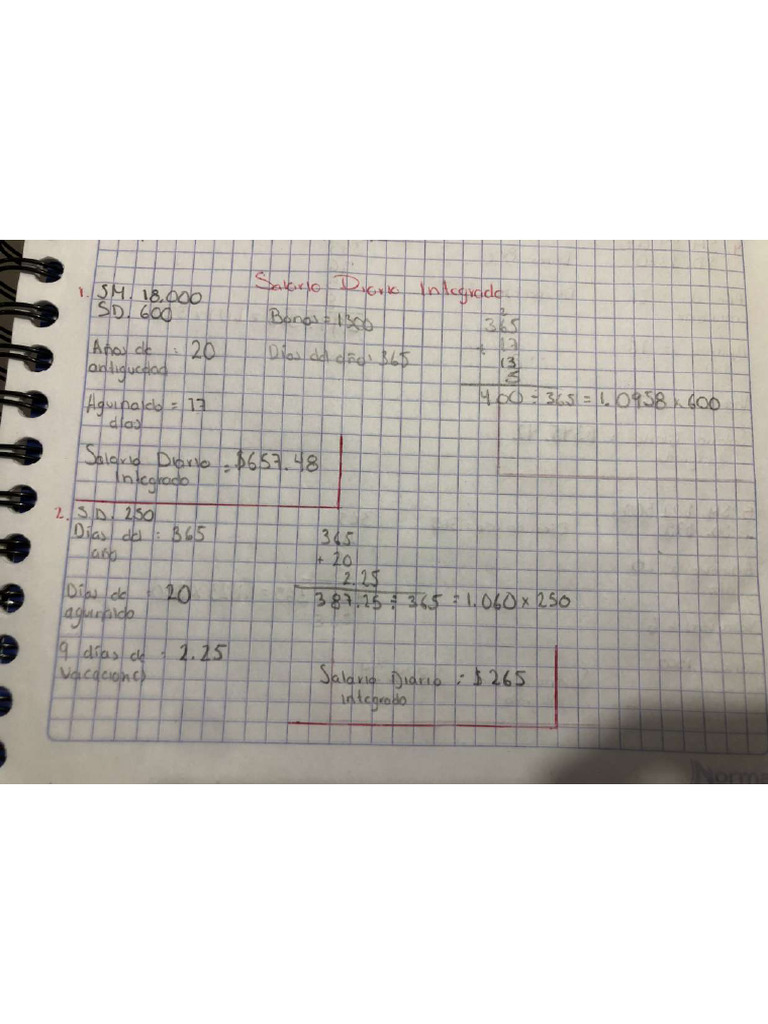 Salario Diario Integrado
1. SM. 18.000
SD. 600
Bonos = 1300
Años de antiguedad : 20
Dias del año: 365
Aguinaldo = 17
dias
2
365
+ 17
13
5
400 ÷ 365 = 1.0958 x 600
Salario Diario = $657.48
Integrado
2. S.D. 250
Dias del : 365
año
Dias de : 20
aguinaldo
9 dias de : 2.25
vacaciones
365
+ 20
2.25
387.25 ÷ 365 = 1.060 x 250
Salario Diario = $265
integrado
Norma